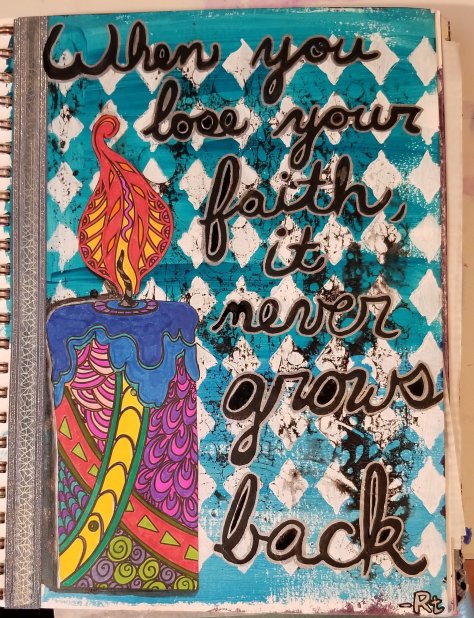 When you
lose your
faith,
it
never
grows
back
-Rt